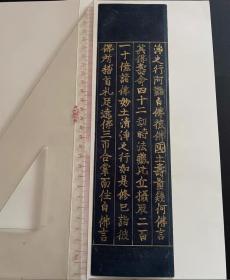 淨之行阿難白佛彼佛國土壽量幾何佛言
其佛壽命四十二劫時法藏比丘攝取二百
一十億諸佛妙土清淨之行如是修已詣彼
佛所稽首礼足遶佛三帀合掌而住白佛言